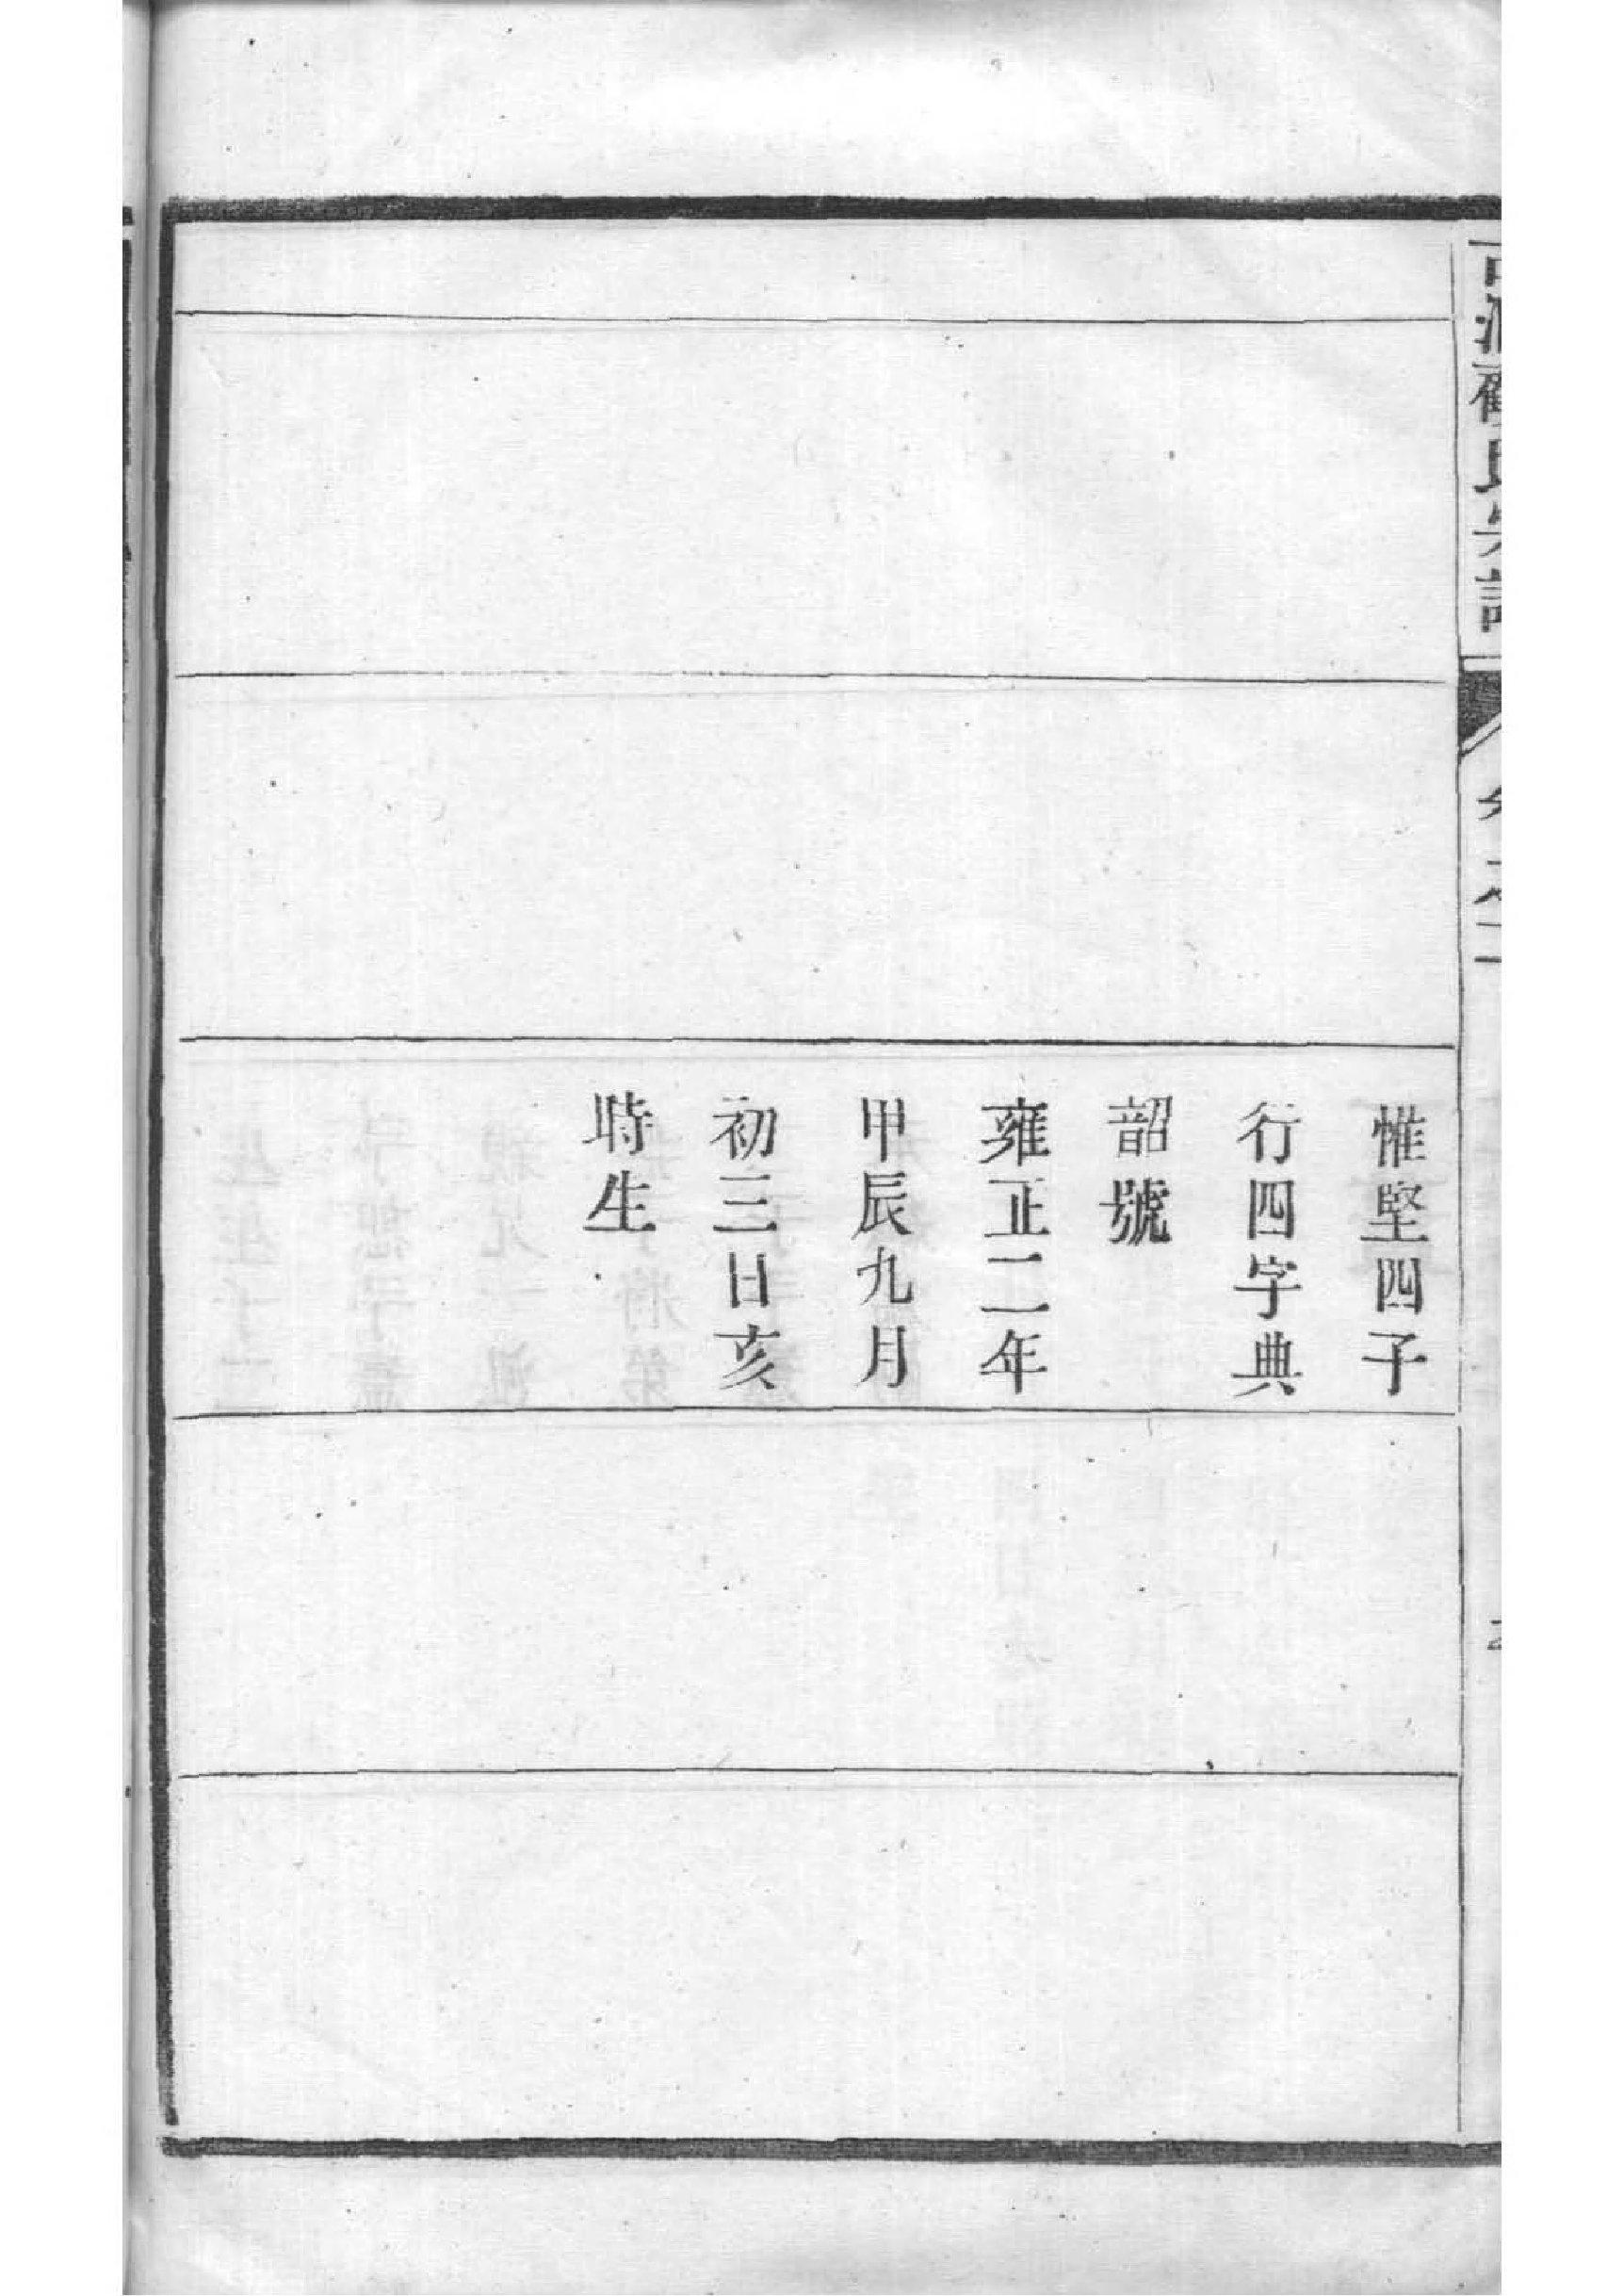 惟堅四子
行四字典
韶號
雍正二年
甲辰九月
初三日亥
時生